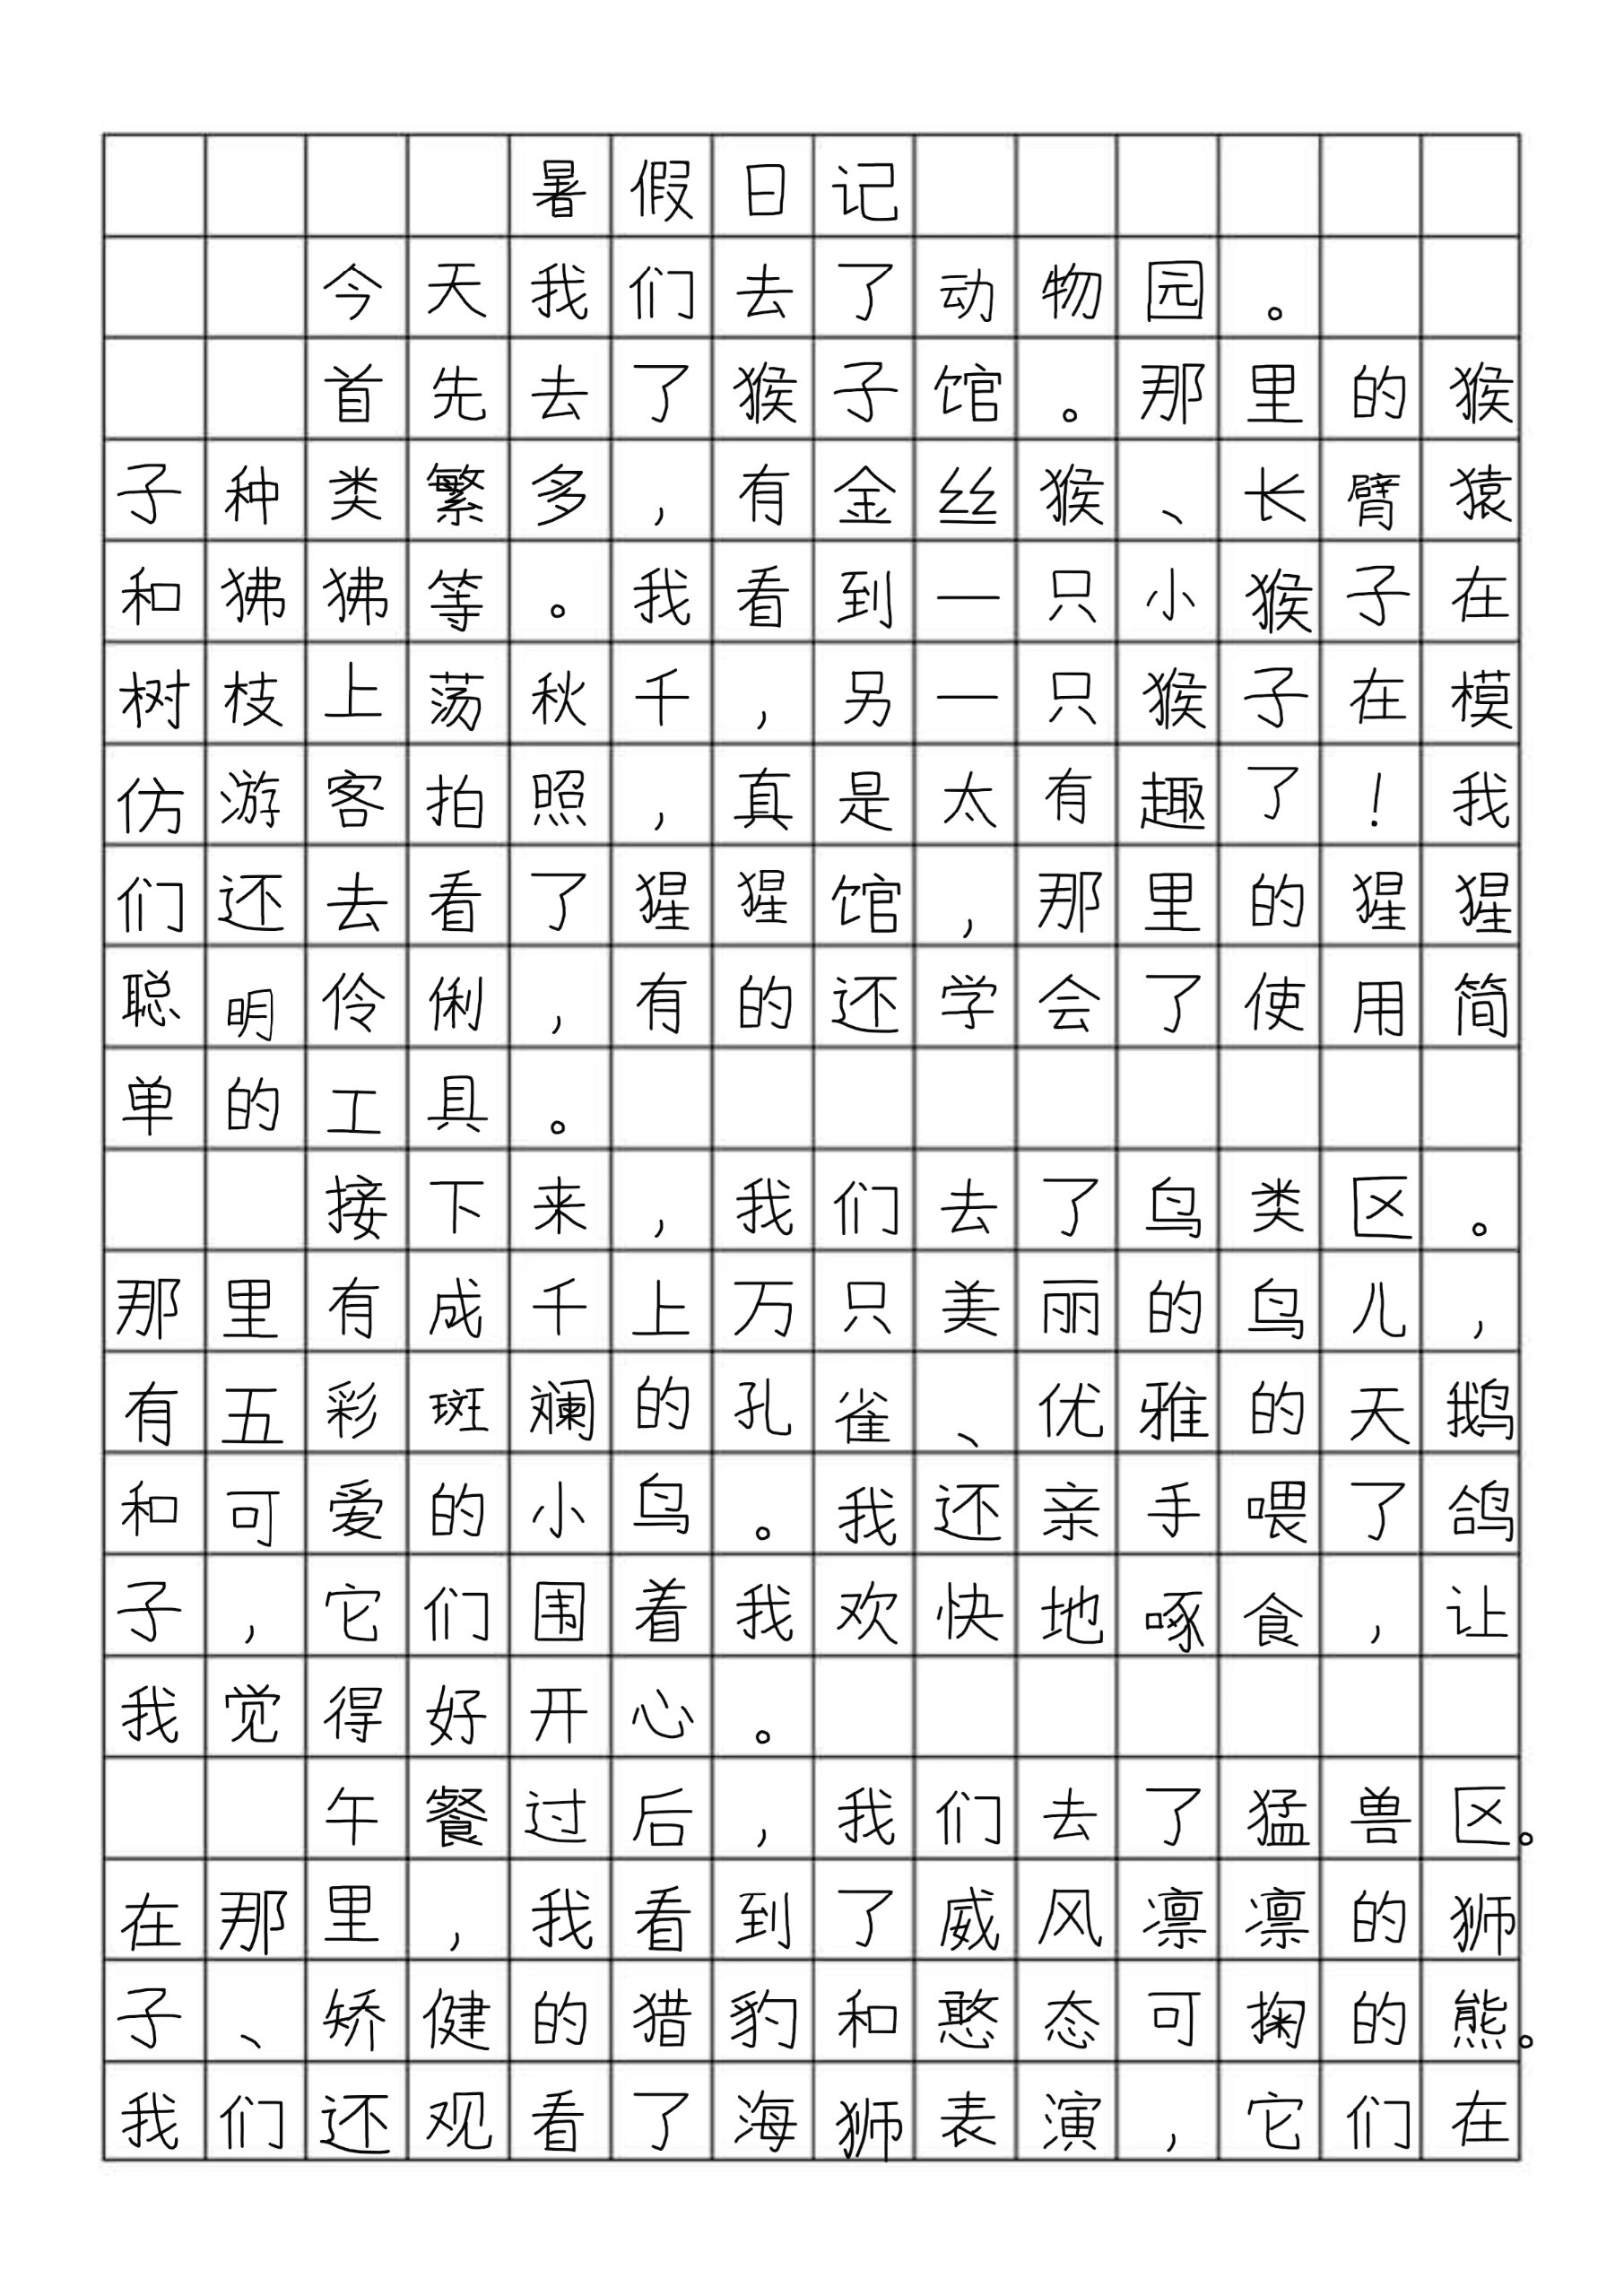 暑假日记
今天我们去了动物园。
首先去了猴子馆。那里的猴
子种类繁多,有金丝猴、长臂猿
和狒狒等。我看到一只小猴子在
树枝上荡秋千,另一只猴子在模
仿游客拍照,真是太有趣了!我
们还去看了猩猩馆,那里的猩猩
聪明伶俐,有的还学会了使用简
单的工具。
接下来,我们去了鸟类区。
那里有成千上万只美丽的鸟儿,
有五彩斑斓的孔雀、优雅的天鹅
和可爱的小鸟。我还亲手喂了鸽
子,它们围着我欢快地啄食,让
我觉得好开心。
午餐过后,我们去了猛兽区。
在那里,我看到了威风凛凛的狮
子、矫健的猎豹和憨态可掬的熊。
我们还观看了海狮表演,它们在